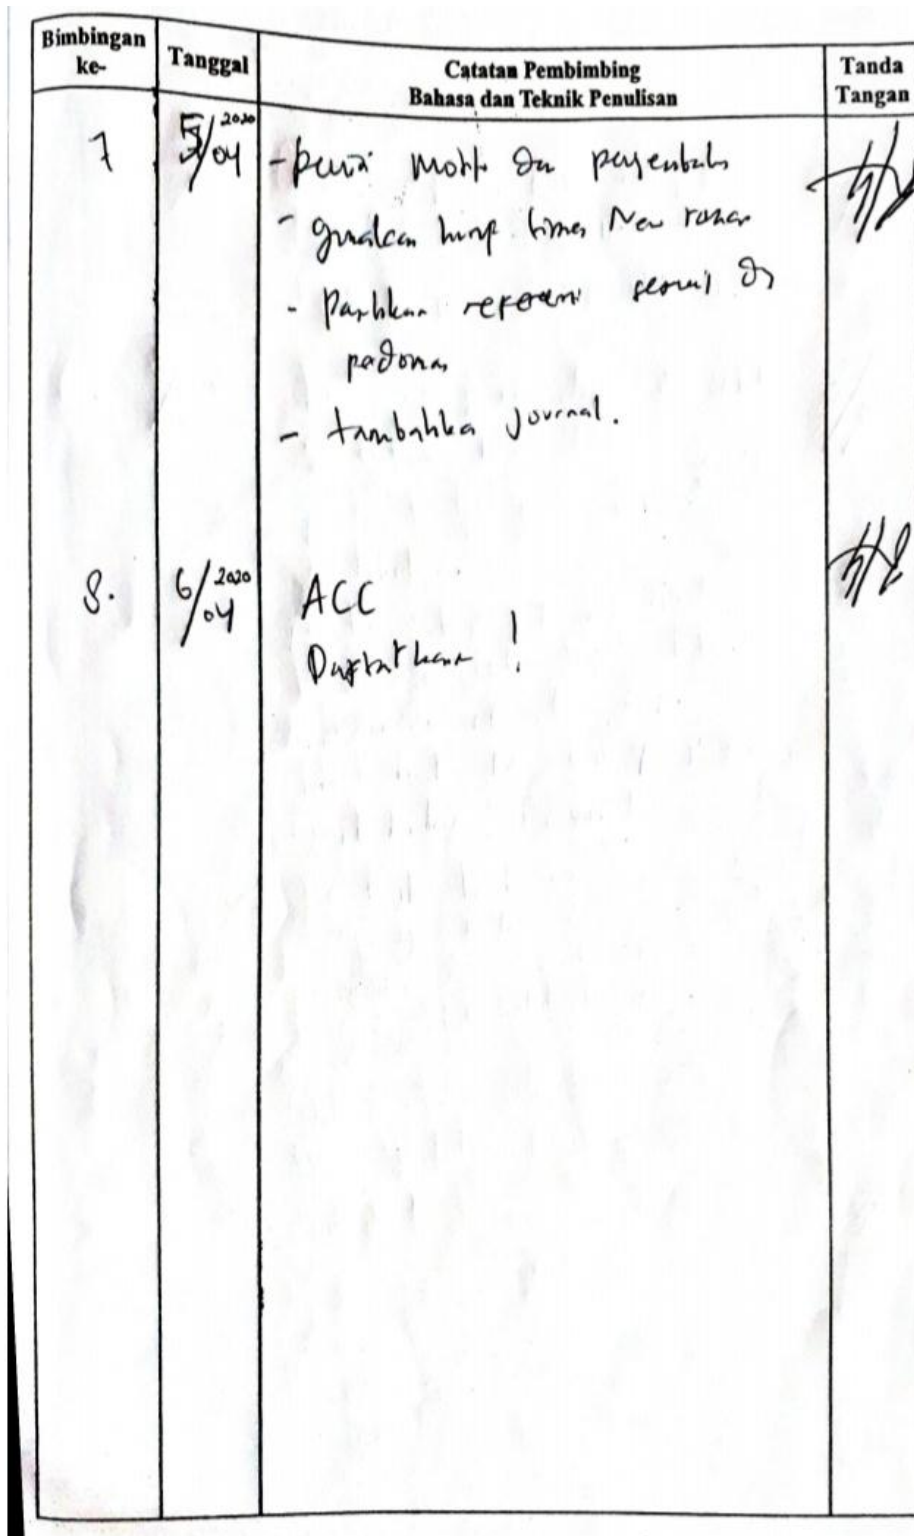 Bimbingan ke-
Tanggal
Catatan Pembimbing
Bahasa dan Teknik Penulisan
Tanda Tangan
7
5/04 2020
- motto dan
- gunakan huruf times New roman
- Pastikan referensi sesuai dg
pedoman
- tambahkan journal.
8.
6/04 2020
ACC
Daftarkan !